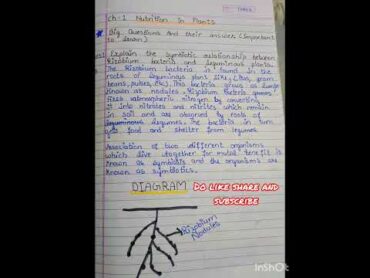 Ch-1 Nutrition In Plants
Big Questions and their answers (Important
to learn)
Explain the symbiotic relationship between
Rizobium bacteria and leguminous plants.
The Rizobium bacteria is found in the
roots of leguminous plant like, (Gram, gram
beans, pulses, etc). This bacteria grows as lumps
known as nodules. Rizobium bacteria
fixes nitrogen by converting
it into nitrates and nitrites which remain
in soil and are absorbed by roots of
legumes. The bacteria in turn
gets food and shelter from legumes
Association of two different organisms
which live together for mutual benefit is
known as symbiosis and the organisms are
known as symbiotics.
DIAGRAM
DO LIKE SHARE AND
SUBSCRIBE
Rizobium
Nodules
InShOt